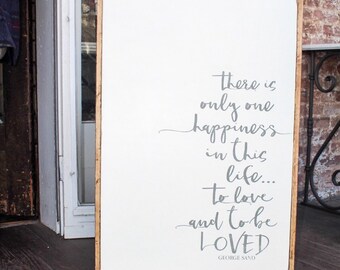 there is
only one
happiness
in this
life...
to love
and to be
LOVED
GEORGE SAND